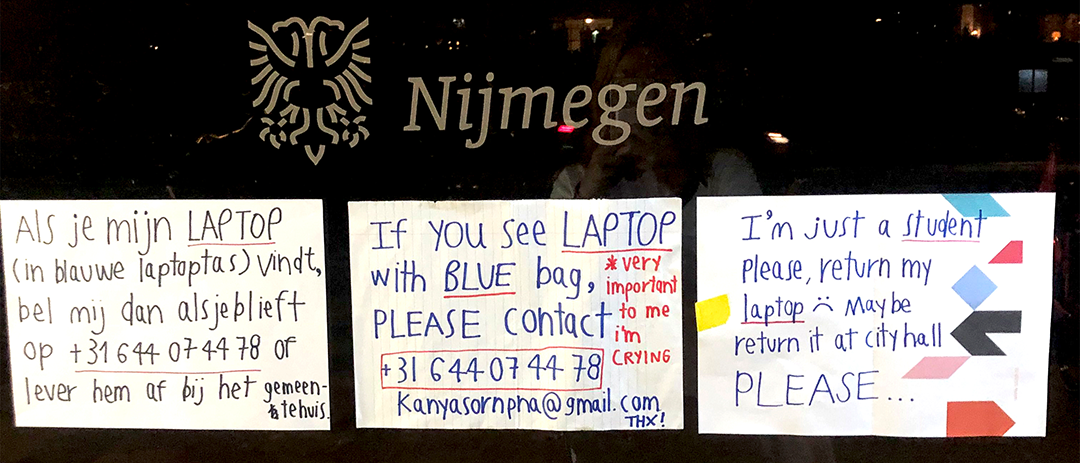 Nijmegen
Als je mijn LAPTOP
(in blauwe laptoptas) vindt,
bel mij dan alsjeblieft
op +31 644 07 44 78 of
lever hem af bij het gemeen-
tehuis.
If you see LAPTOP
with BLUE bag,
PLEASE contact
* very
important
to me
i'm
CRYING
+31 644 07 44 78
kanyasornpna@gmail.com
THX!
I'm just a student
please, return my
laptop :( Maybe
return it at city hall
PLEASE...